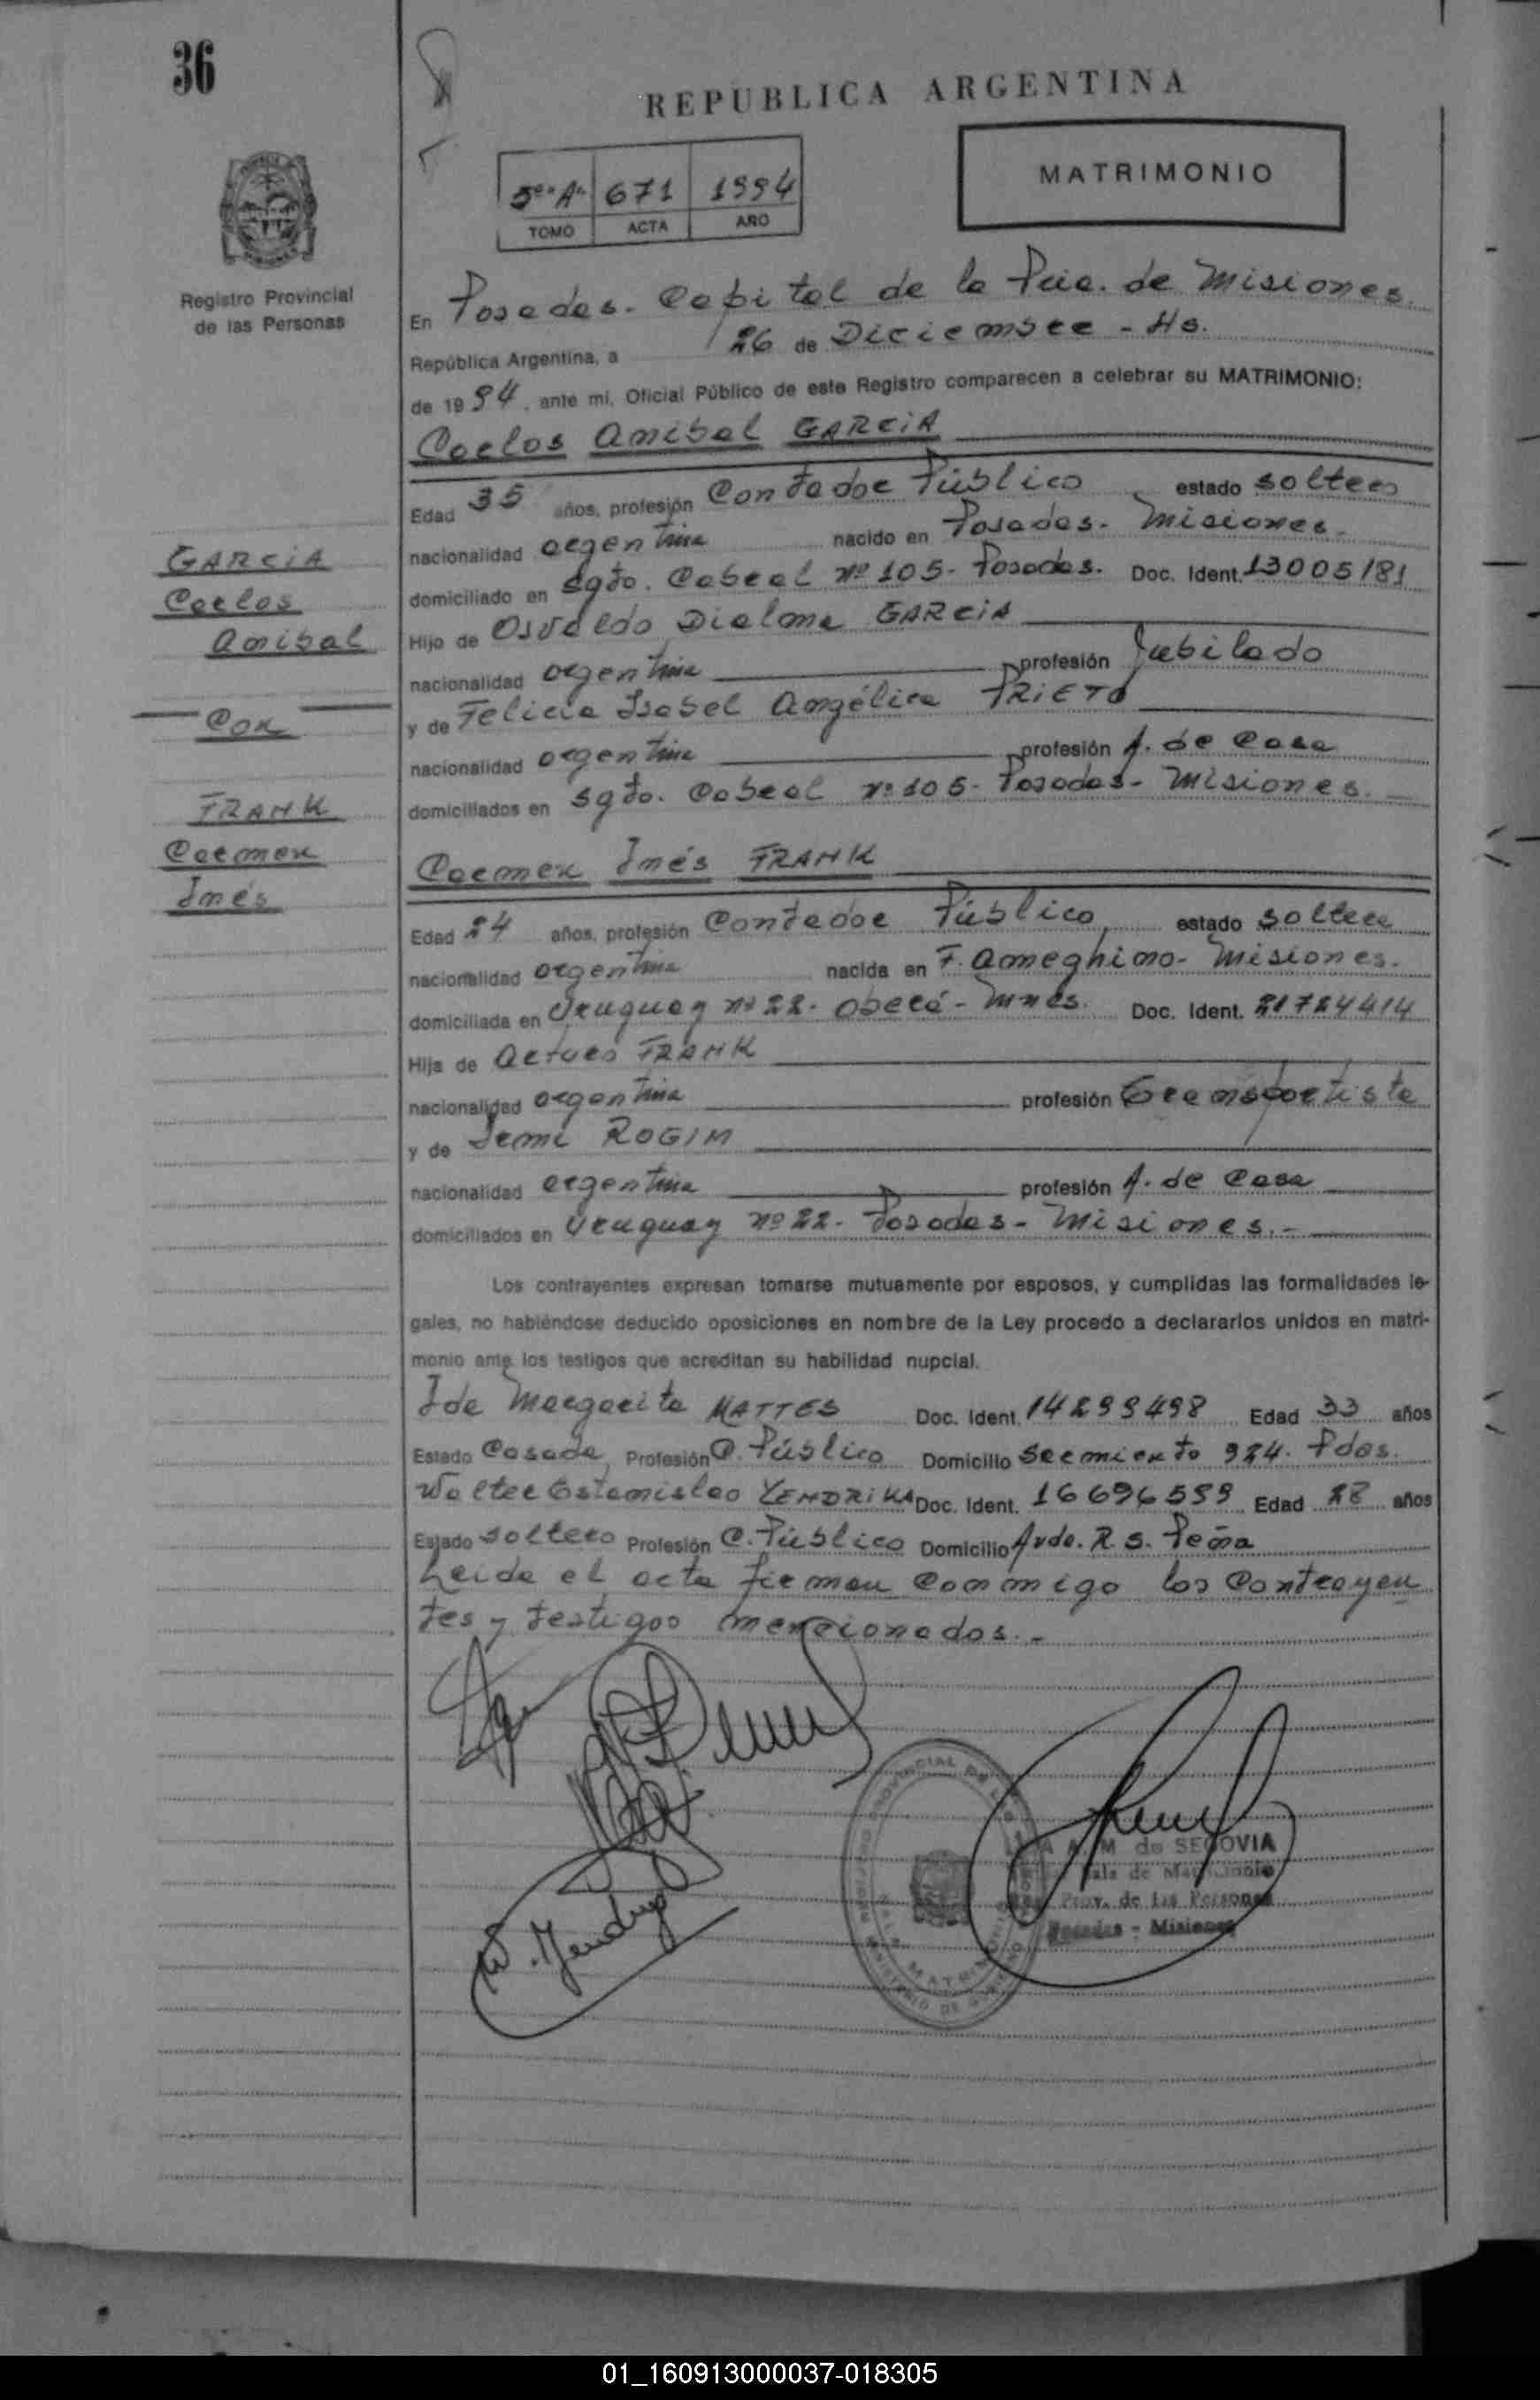 36
REPUBLICA ARGENTINA
MATRIMONIO
5º A 671 1994
TOMO ACTA AÑO
Registro Provincial
de las Personas
En Posadas. Capital de la Pcia. de Misiones.
República Argentina, a 26 de Diciembre - Hs.
de 1994, ante mí, Oficial Público de este Registro comparecen a celebrar su MATRIMONIO:
Carlos Anibal GARCIA
Edad 35 años, profesión Contador Público estado soltero
nacionalidad argentina nacido en Posadas. Misiones.
domiciliado en Sgto. Cabral Nº 105. Posadas. Doc. Ident. 13005181
Hijo de Osvaldo GARCIA
nacionalidad argentina profesión Jubilado
y de Felicia Isabel Angélica PRIETO
nacionalidad argentina profesión A. de Casa
domiciliados en Sgto. Cabral Nº 105. Posadas - Misiones.
GARCIA
Carlos
Anibal
CON
FRANK
Carmen
Inés
Carmen Inés FRANK
Edad 24 años, profesión Contador Público, estado soltera
nacionalidad argentina nacida en F. Ameghino. Misiones.
domiciliada en Uruguay Nº 22. Oberá - Mnes. Doc. Ident. 21724414
Hija de Arturo FRANK
nacionalidad argentina profesión Transportista
y de ROGIN
nacionalidad argentina profesión A. de Casa
domiciliados en Uruguay Nº 22. Posadas - Misiones.-
Los contrayentes expresan tomarse mutuamente por esposos, y cumplidas las formalidades le-
gales, no habiéndose deducido oposiciones en nombre de la Ley procedo a declararlos unidos en matri-
monio ante los testigos que acreditan su habilidad nupcial.
Ida Margarita MATTES Doc. Ident. 14299498 Edad 33 años
Estado Casada, Profesión C. Público Domicilio Sarmiento 924. Pdas.
Walter Estanislao Doc. Ident. 16696599 Edad 28 años
Estado soltero Profesión C. Público Domicilio Avda. R. S. Peña
Leida el acta firman conmigo los contrayen
tes y testigos mencionados.-
M de SEGOVIA
Sala de Matrimonio
Prov. de las Personas
Posadas - Misiones
MATRIMONIO
MINISTERIO DE GOBIERNO
01_160913000037-018305